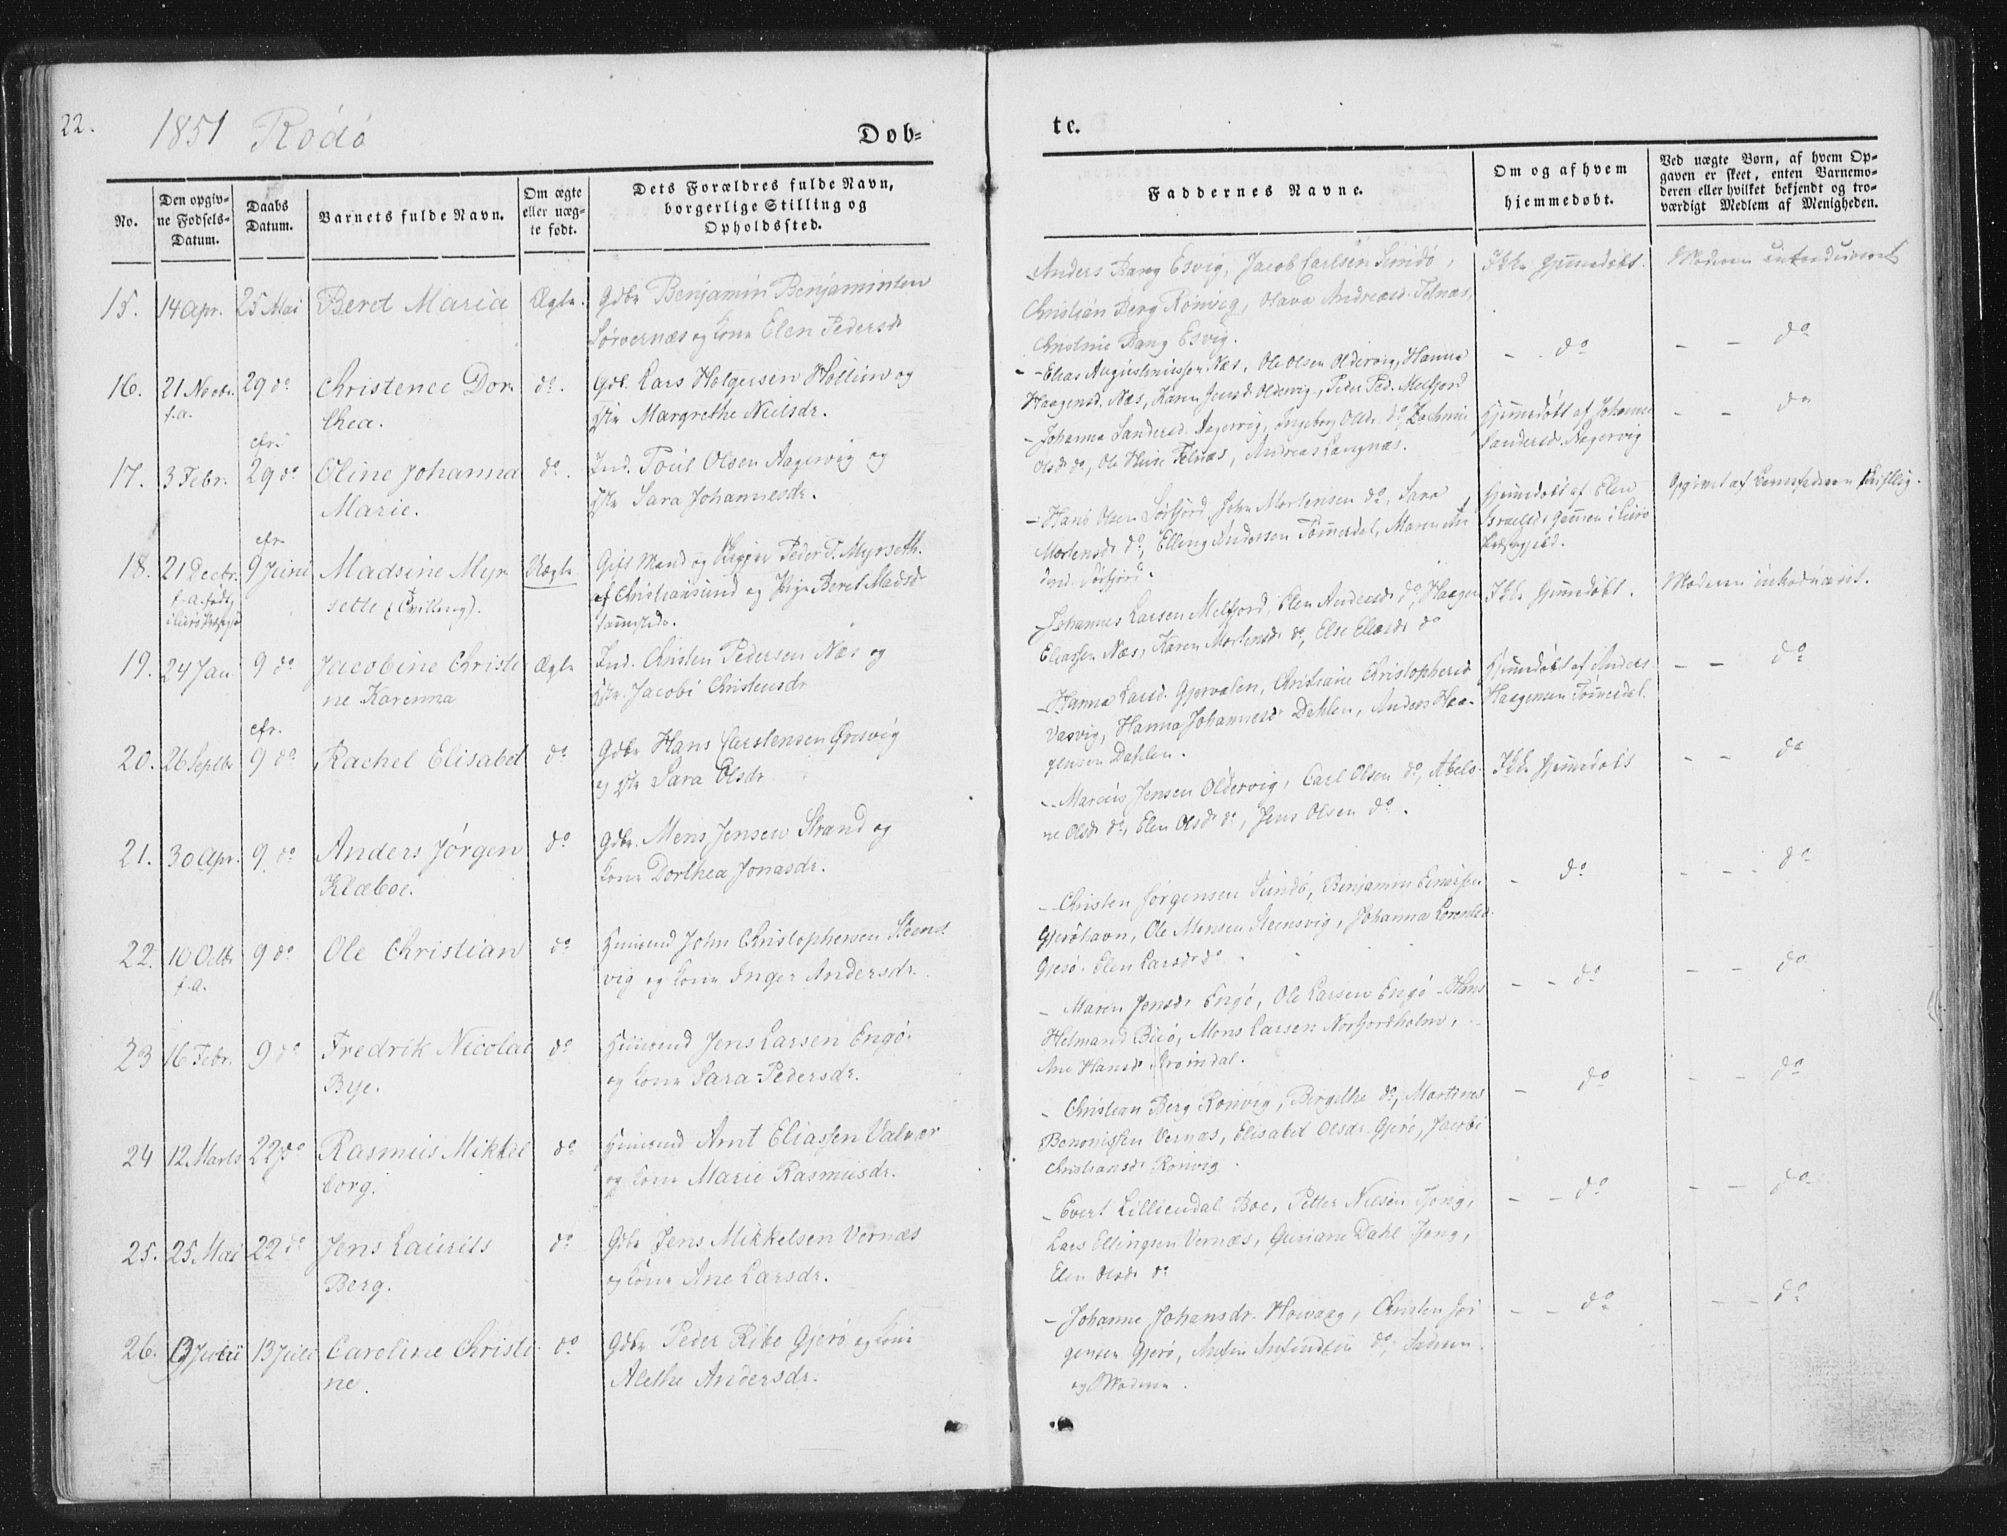 22.
1851 Rödö
Døb-
te.
No.
Den opgiv-
ne Fødsels-
Datum.
Daabs
Datum.
Barnets fulde Navn.
Om ægte
eller uæg-
te født.
Dets Forældres fulde Navn,
borgerlige Stilling og
Opholdssted.
Faddernes Navne.
Om og af hvem
hjemmedøbt.
Ved uægte Børn, af hvem Op-
gaven er skeet, enten Barnemo-
deren eller hvilket bekjendt og tro-
værdigt Medlem af Menigheden.
15. 14 Apr. 25 Mai Beret Maria Ægte. Gdbr Benjamin Benjaminsen
Sörvernæs og Kone Elen Pedersdr
Anders Bang Esvig, Jacob Carlsen Sundö,
Christian Berg Rönvig, Olava Andreasd. Telnæs,
Christine Bang Esvig.
Ikke hjemmedöbt.
Moderen introduceret
16. 21 Novbr. 29 do Christence Dor-
f.a.
thea.
do. Gdb. Lars Holgersen
og
Hr Margrethe Nielsdr.
- Elias Augustinussen Næs, Ole Olsen Oldervig, Hanna
Haagensd. Næs, Karen Jensd. Oldervig, Peder Ped. Melfjord
- do
- - do
17. 3 Febr.
cfr.
29 do Oline Johanna
Marie.
do. Ind. Poul Olsen Aagervig og
Hr Sara Johannesdr.
- Johanna Sandersd. Aagervig, Ingeborg Olsdr. do,
Olsdr do, Ole Telnæs, Andreas Langnæs.
Hjemmedöbt af Johanna
Sandersd. Aagervig
- - do
18. 21 Decbr.
f.a. født
cfr.
9 Juni Madsine Myr-
sette (Tvilling).
Uægte Gift Mand og Skipper Peder T. Myrseth
af Christiansund og Pige Beret Madsdr
- Hans Olsen Sörfjord, John Mortensen do, Sara
Mortensdr do, Elling Andersen Tönnesdal, Maren An-
dersd. Sörfjord.
Hjemmedöbt af Elen
Israelsdr
Præstegjeld.
Opgivet af Barnefaderen skriftlig.
19. 24 Jan. 9 do Jacobine Christi-
ne Karenna
Ægte Ind. Christen Pedersen Næs og
Hr. Jacobi Christensdr
- Johannes Larsen Melfjord, Elen Andersdr do, Haagen
Eliassen Næs, Karen Mortensdr do, Else Eliasdr do
Ikke hjemmedöbt.
Moderen introduceret.
20. 26 Septbr
cfr.
9 do Rachel Elisabet do Gdbr Hans Carstensen Öresvig
og Hr Sara Olsdr
- Hanna Larsd. Gjervalen, Christiane Christophersd
Vasvig, Hanna Johannesdr Dahlen, Anders Haa-
gensen Dahlen.
Hjemmedöbt af Anders
Haagensen Tönnesdal.
- - do
21. 30 Apr. 9 do Anders Jörgen
Klæboe.
do Gdbr. Mons Jensen Strand og
Kone Dorthea Jonasdr.
- Marcus Jensen Oldervig, Carl Olsen do, Abelo-
ne Olsdr do, Elen Olsdr do, Jens Olsen do.
Ikke hjemmedöbt
- - do
22. 10 Octbr 9 do Ole Christian
f.a.
do Huusmd John Christophersen Steens-
vig og Kone Inger Andersdr.
- Christen Jörgensen Sundö, Benjamin
Gjeröhavn, Ole Monsen Steensvig, Johanna Lorentsd
Gjerö, Elen Larsdr do
- do
- - - do
23 16 Febr. 9 do Fredrik Nicolai
Bye.
do Huusmd Jens Larsen Engö
og Kone Sara Pedersdr.
- Maren Jensdr Engö, Ole Larsen Engö, Hans
Helmand, Mons Larsen Norfjordholm,
Ane Hansdr Strömdal.
- - do
- - do
24 12 Marts 22 do Rasmus Mikkel
borg.
do Huusmd Arnt Eliassen Valvær
og Kone Marie Rasmusdr.
- Christian Berg Rönvig, Bergithe do, Martines
Benonissen Vernæs, Elisabet Olsdr. Gjerö, Jacobi
Christiansdr Rönvig.
- do
- - do
25. 25 Mai 22 do Jens Laurits
Berg.
do Gdbr Jens Mikkelsen Vernæs
og Kone Ane Larsdr.
- Evert Lilliendal Boe, Petter Nilsen Tjong,
Lars Ellingsen Vernæs, Guriane Dahl Tjong,
Elen Olsdr do
- - do
- - do
26. 3 Juli 13 Juli Caroline Christi-
ne.
do Gdbr Peder Ribe Gjerö og Kone
Alethe Andersdr.
- Johanne Johansdr. Havaag, Christen Jör-
gensen Gjerö, do, Faderen
og Moderen.
- - do
- - do